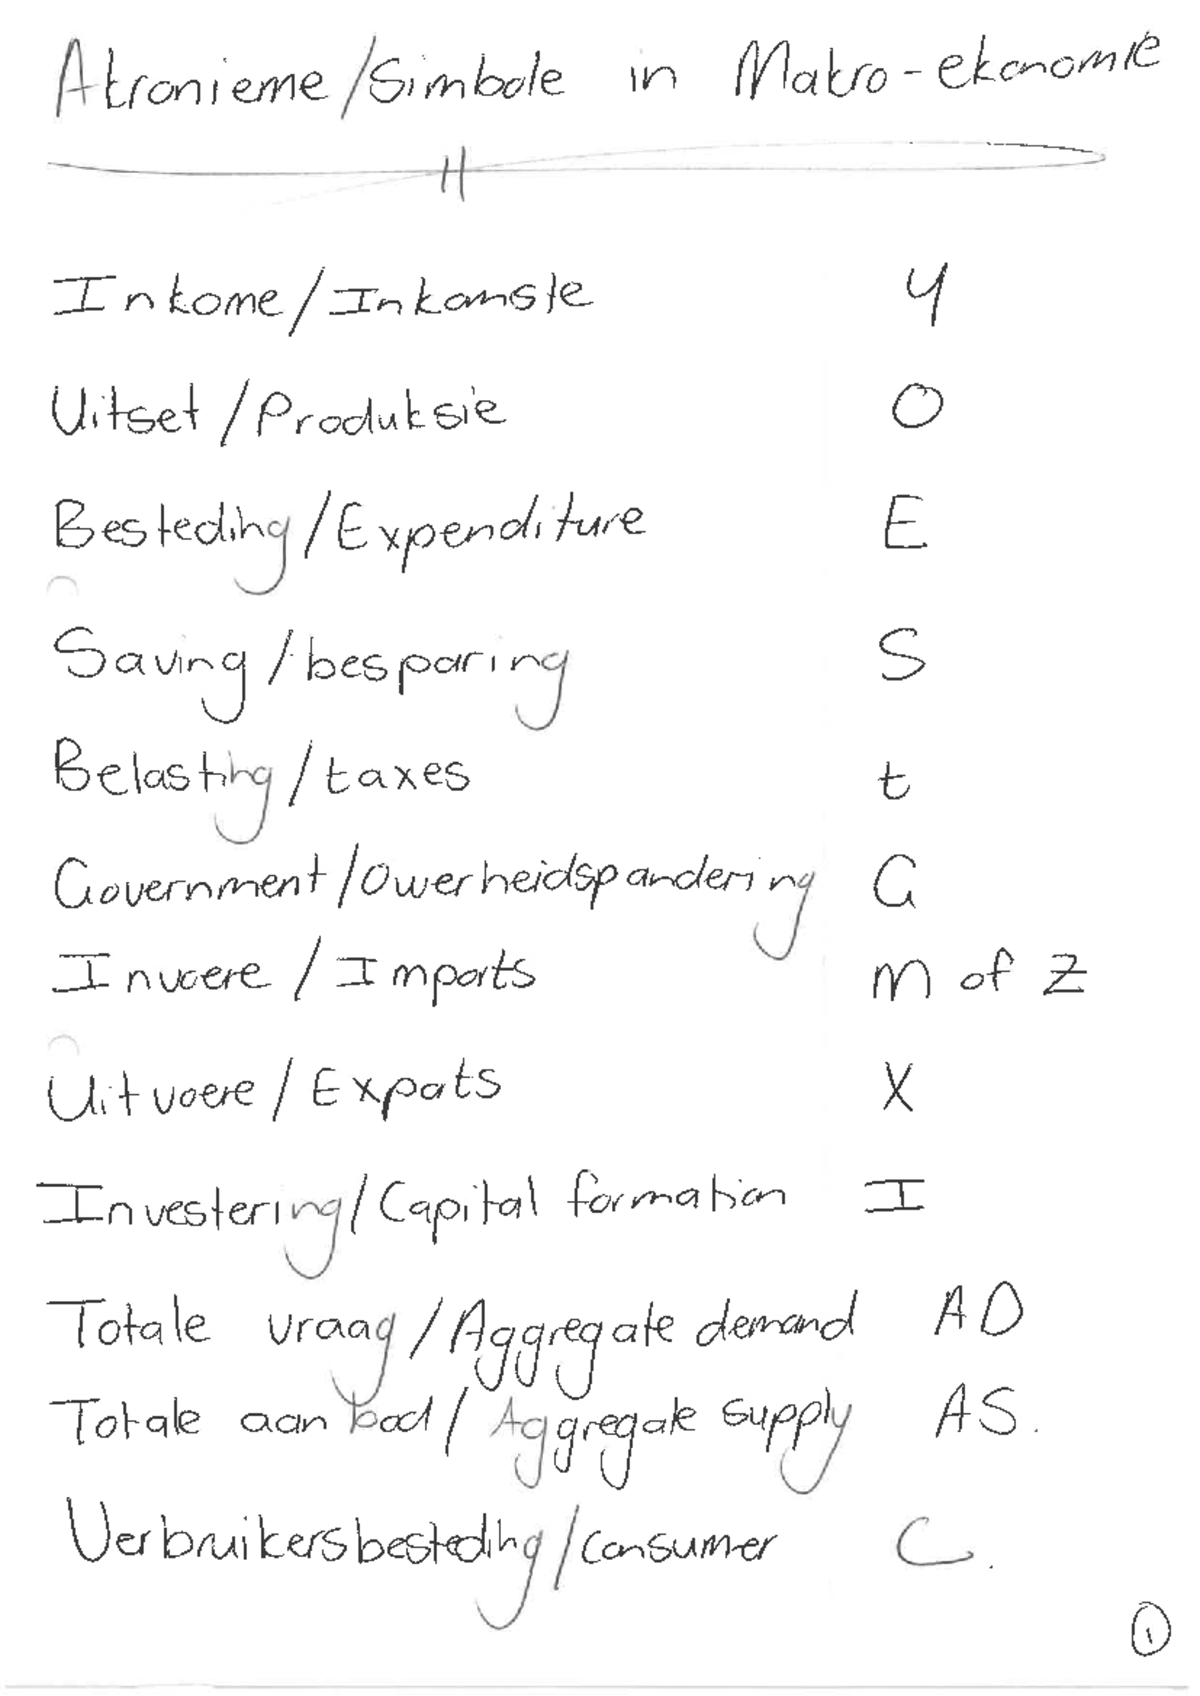 Akronieme/Simbole in Makro-ekonomie
Inkome/Inkomste Y
Uitset/Produksie O
Besteding/Expenditure E
Saving/besparing S
Belasting/taxes t
Government/Owerheidspandering G
Invoere/Imports M of Z
Uitvoere/Expots X
Investering/Capital formation I
Totale vraag/Aggregate demand AD
Totale aanbod/Aggregate supply AS.
Verbruikersbesteding/consumer C.
1